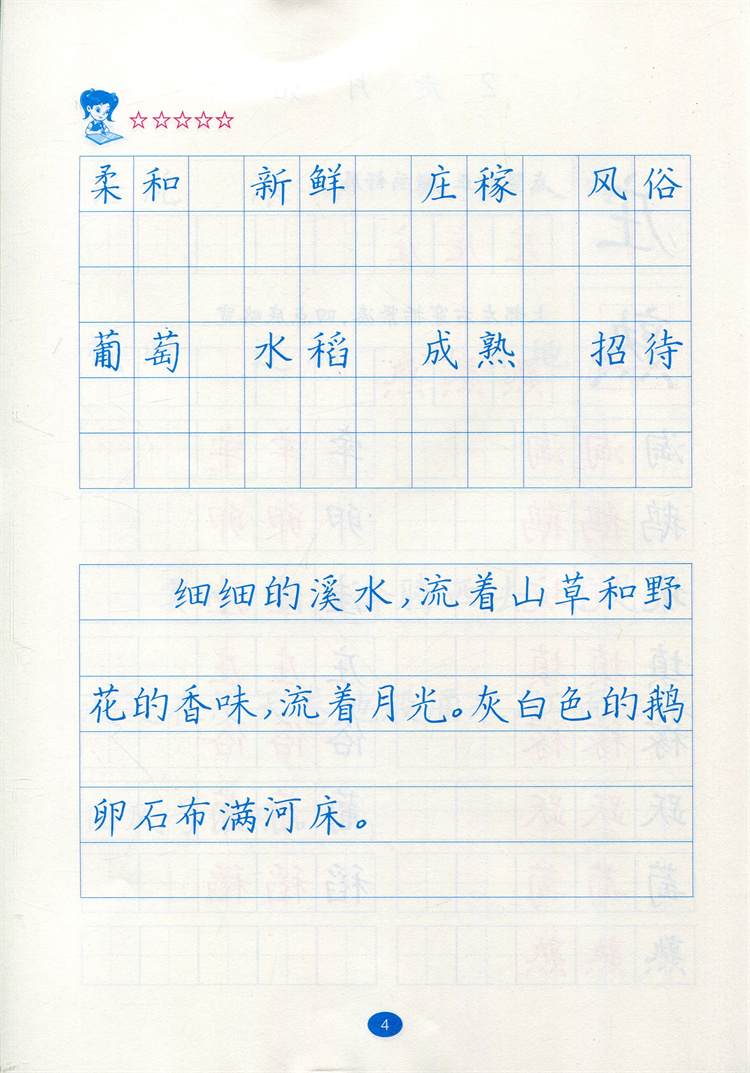 柔和 新鲜 庄稼 风俗
葡萄 水稻 成熟 招待
细细的溪水,流着山草和野
花的香味,流着月光。灰白色的鹅
卵石布满河床。
4